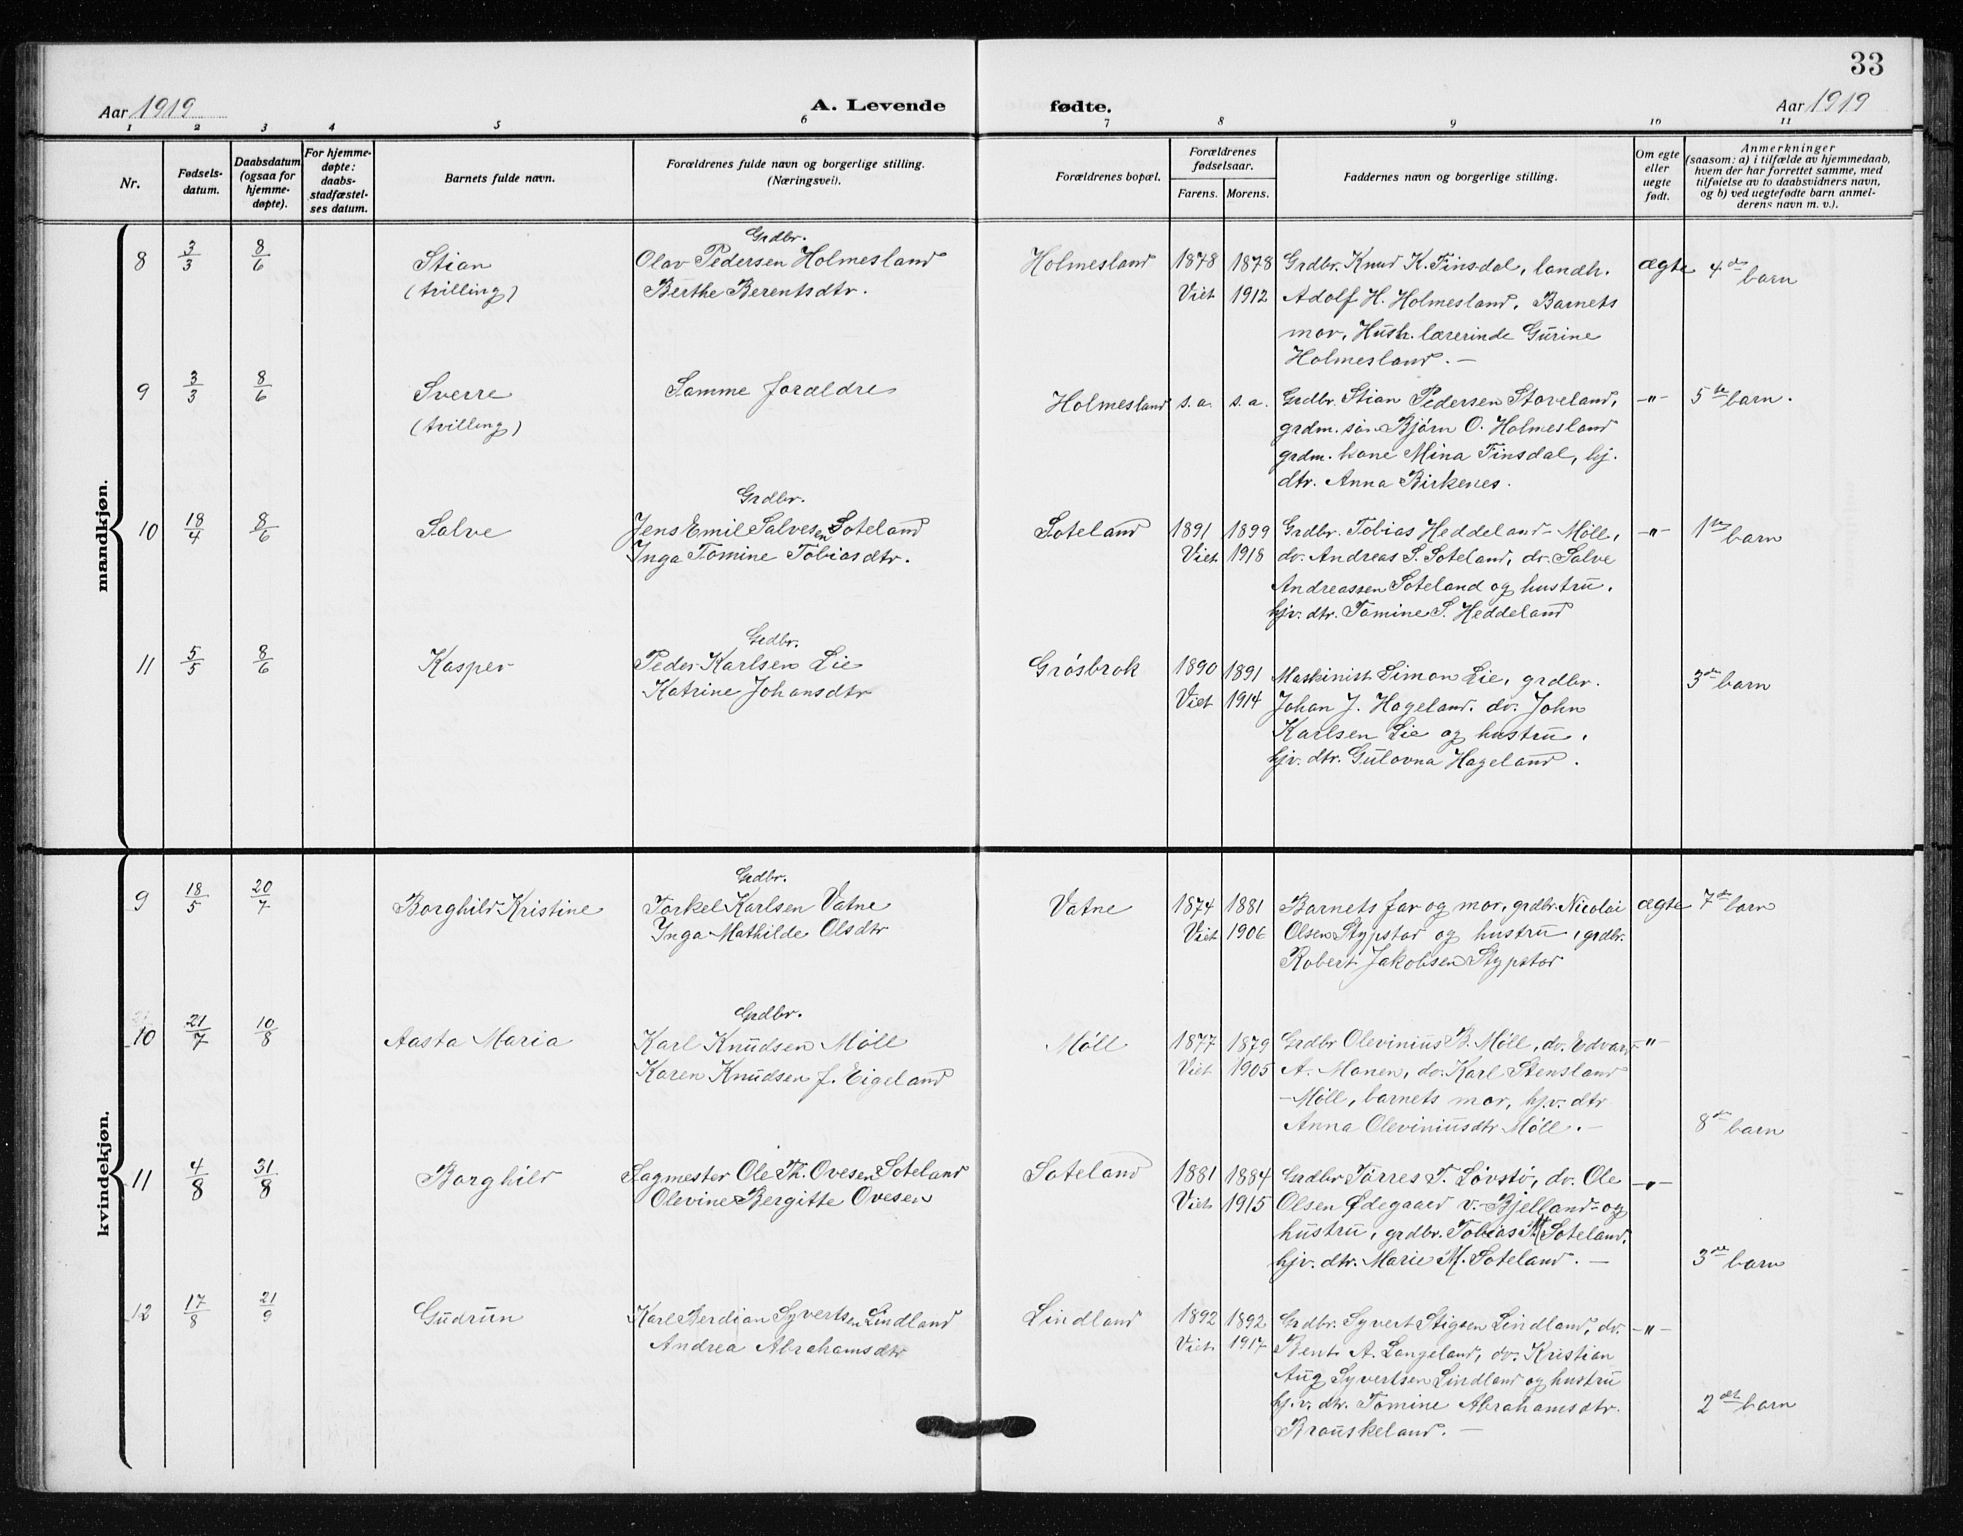 33
Aar 1919
A. Levende fødte.
Aar 1919
1 2 3 4 5 6 7 8 9 10 11
Nr.
Fødsels-
datum.
Daabsdatum
(ogsaa for
hjemme-
døpte).
For hjemme-
døpte:
daabs-
stadfæstel-
ses datum.
Barnets fulde navn.
Forældrenes fulde navn og borgerlige stilling.
(Næringsvei).
Forældrenes bopæl.
Forældrenes
fødselsaar.
Farens. Morens.
Faddernes navn og borgerlige stilling.
Om egte
eller
uegte
født.
Anmerkninger
(saasom: a) i tilfælde av hjemmedaab,
hvem der har forrettet samme, med
tilføielse av to daabsvidners navn,
og b) ved uegtefødte barn anmel-
derens navn m. v.).
mandkjøn.
8 3/3 8/6
Stian
(tvilling)
Grdbr.
Olav Pedersen Holmesland
Berthe Berentsdtr.
Holmesland
1878 1878
Viet 1912
Grdbr. Knud K. Finsdal, landh.
Adolf H. Holmesland, Barnets
mor, Hush. lærerinde Gurine
Holmesland. —
ægte
4de barn
9 3/3 8/6
Sverre
(tvilling)
Samme forældre
Holmesland s.a. s.a.
Grdbr. Stian Pedersen Stoveland,
grdm. søn Bjørn O. Holmesland
grdm. kone Mina Finsdal, hj.
dtr. Anna Birkenes.
-"-
5te barn.
10 18/4 8/6
Salve
Grdbr.
Jens Emil Salvesen Soteland
Inga Tomine Tobiasdtr.
Soteland
1891 1899
Viet 1918
Grdbr. Tobias Heddeland-Møll,
do. Andreas S. Soteland, do. Salve
Andreassen Soteland og hustru,
hjv. dtr. Tomine S. Heddeland
-"-
1ste barn
11 5/5 8/6
Kasper
Grdbr.
Peder Karlsen Lie
Katrine Johansdtr
Grösbrok
1890 1891
Viet 1914
Maskinist Simon Lie, grdbr.
Johan J. Hageland, do. John
Karlsen Lie og hustru,
hjv. dtr. Gulovna Hageland.
3die barn
kvindekjøn.
9 18/5 20/7
Borghild Kristine
Grdbr.
Torkel Karlsen Vatne
Inga Mathilde Olsdtr
Vatne
1874 1881
Viet 1906
Barnets far og mor, grdbr. Nicolai
Olsen Stypstad og hustru, grdbr.
Robert Jakobsen Stypstad
ægte
7de barn
10 21/7 10/8
Aasta Maria
Grdbr.
Karl Knudsen Møll
Karen Knudsen f. Eigeland
Møll
1877 1879
Viet 1905
Grdbr Olevinius B. Møll, do. Edvard
A. Monen, do. Karl Stensland
-Møll, barnets mor, hjv. dtr
Anna Oleviniusdtr Møll. —
"-
8de barn
11 4/8 31/8
Borghild
Sagmester Ole Th. Ovesen Soteland
Olevine Bergitte Ovesen
Soteland
1881 1884
Viet 1915
Grdbr Tørres T. Løvstø, do. Ole
Olsen Ødegaard v. Bjelland og
hustru, grdbr. Tobias M. Soteland,
hjv. dtr. Marie M. Soteland. —
-"-
3die barn
12 17/8 21/9
Gudrun
Karl Berdian Syvertsen Lindland
Andrea Abrahamsdtr
Lindland
1892 1892
Viet 1917
Grdbr. Syvert Stigsen Lindland, do.
Bent A. Langeland, do. Kristian
Aug Syvertsen Lindland og hustru
hj.v. dtr. Tomine Abrahamsdtr.
Brauskeland. —
-"-
2det barn